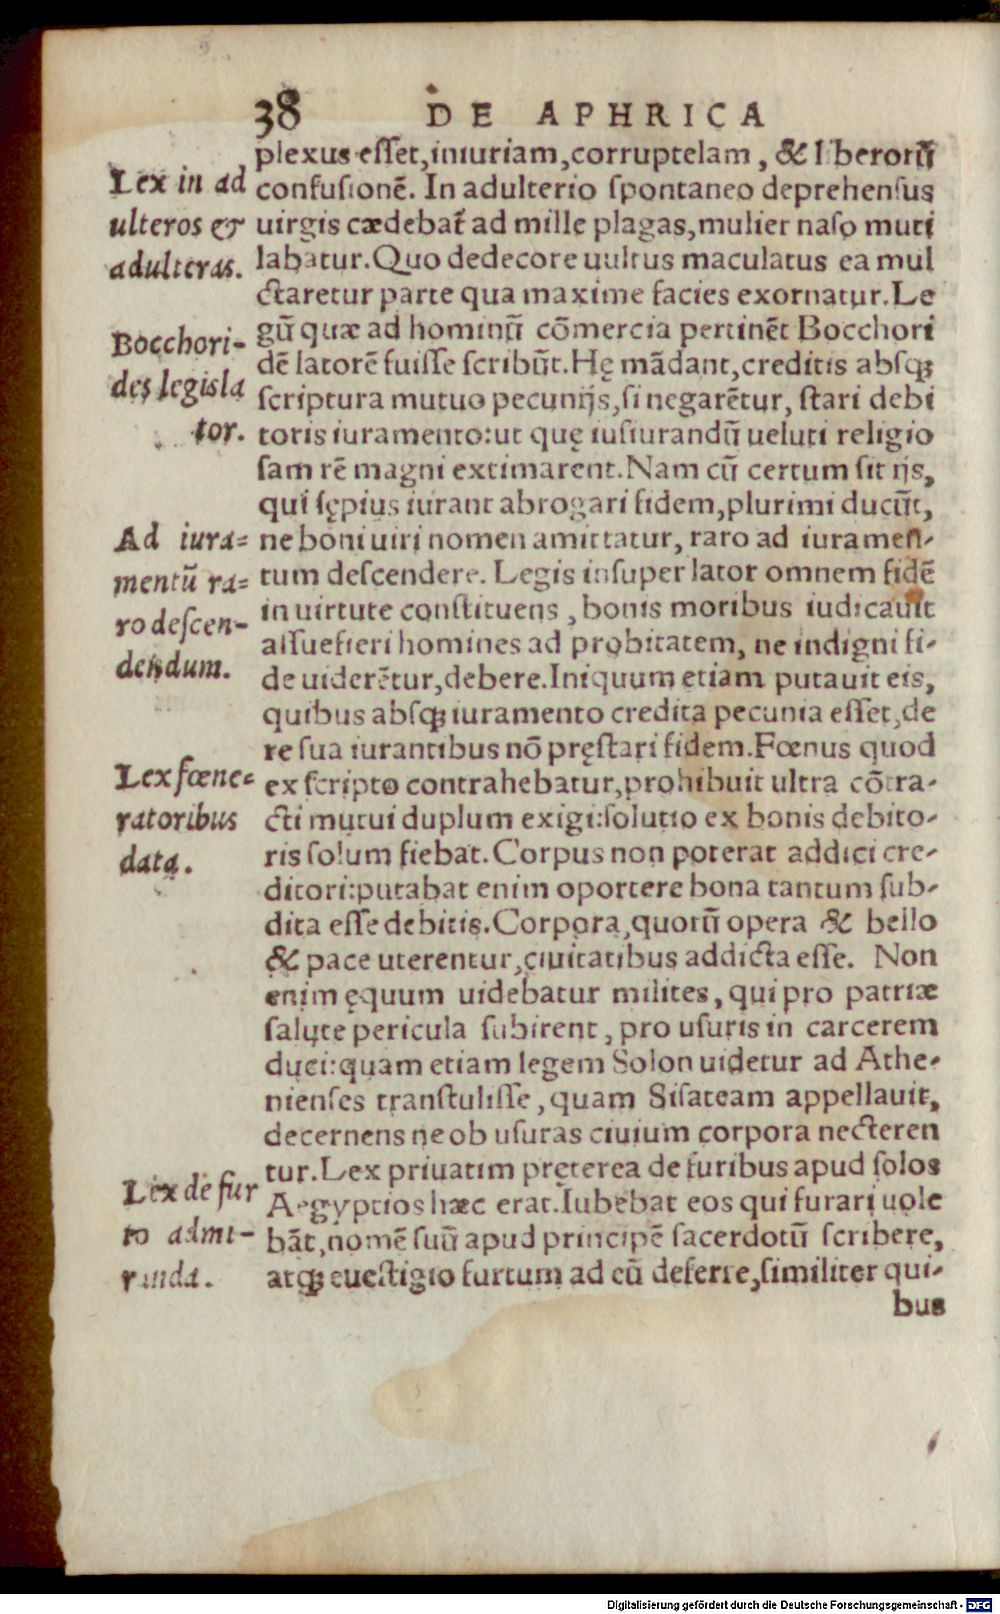 38 DE APHRICA
plexus esset, iniuriam, corruptelam, & liberorũ
Lex in ad
ulteros &
adulteras.
confusionẽ. In adulterio spontaneo deprehensus
uirgis cædebat̃ ad mille plagas, mulier naso muti
labatur. Quo dedecore uultus maculatus ea mul
ctaretur parte qua maxime facies exornatur. Le
Bocchori-
des legisla
tor.
gũ quæ ad hominũ cõmercia pertinẽt Bocchori
dẽ latorẽ fuisse scribũt. Hę mãdant, creditis absq;
scriptura mutuo pecunijs, si negarẽtur, stari debi
toris iuramento: ut quę iusiurandũ ueluti religio
sam rẽ magni extimarent. Nam cũ certum sit ijs,
qui sępius iurant abrogari fidem, plurimi ducũt,
Ad iura-
mentũ ra-
ro descen-
dendum.
ne boni uiri nomen amittatur, raro ad iuramen-
tum descendere. Legis insuper lator omnem fidẽ
in uirtute constituens, bonis moribus iudicauit
assuefieri homines ad probitatem, ne indigni fi-
de uiderẽtur, debere. Iniquum etiam putauit eis,
quibus absq; iuramento credita pecunia esset, de
re sua iurantibus nõ pręstari fidem. Fœnus quod
Lex fœne-
ratoribus
data.
ex scripto contrahebatur, prohibuit ultra cõtra-
cti mutui duplum exigi: solutio ex bonis debito-
ris solum fiebat. Corpus non poterat addici cre-
ditori: putabat enim oportere bona tantum sub-
dita esse debitis. Corpora, quorũ opera & bello
& pace uterentur, ciuitatibus addicta esse. Non
enim ęquum uidebatur milites, qui pro patriæ
salute pericula subirent, pro usuris in carcerem
duci: quam etiam legem Solon uidetur ad Athe-
nienses transtulisse, quam Sisateam appellauit,
decernens ne ob usuras ciuium corpora necteren
tur. Lex priuatim pręterea de furibus apud solos
Lex de fur
to admi-
randa.
Aegyptios hæc erat. Iubebat eos qui furari uole
bãt, nomẽ suũ apud principẽ sacerdotũ scribere,
atq; euestigio furtum ad eũ deferre, similiter qui-
bus
Digitalisierung gefördert durch die Deutsche Forschungsgemeinschaft - DFG